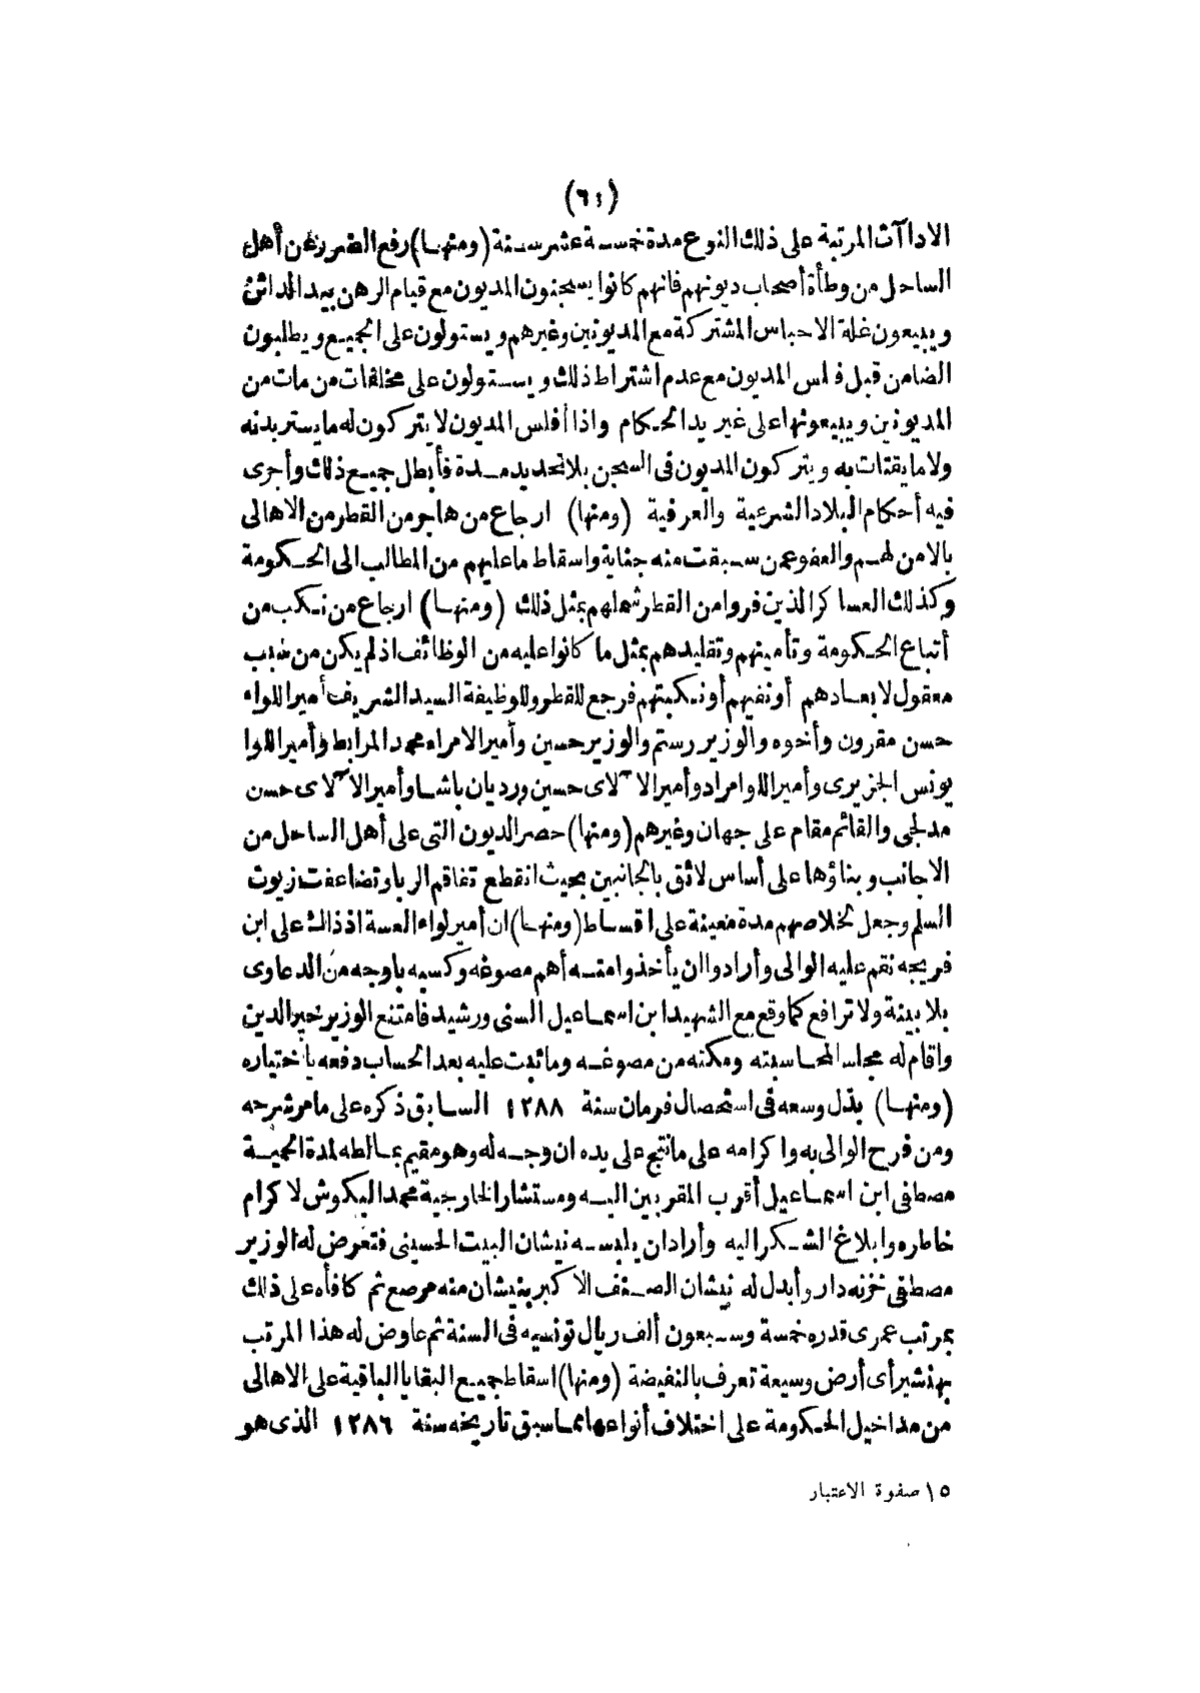 (٦٤)
الاداآت المرتبة على ذلك النوع مدة خمسة عشر سنة (ومنها) رفع الضرر عن أهل
الساحل من وطأة أصحاب ديونهم فانهم كانوا يسجنون المديون مع قيام الرهن بيد الدائن
ويبيعون غلة الاحباس المشتركة مع المديونين وغيرهم ويستولون على الجميع ويطلبون
الضامن قبل فلس المديون مع عدم اشتراط ذلك ويستولون على مخلفات من مات من
المديونين ويبيعونها على غير يد الحكام واذا أفلس المديون لا يتركون له ما يستر بدنه
ولا ما يقتات به ويتركون المديون فى السجن بلا تحديد مدة فأبطل جميع ذلك وأجرى
فيه أحكام البلاد الشرعية والعرفية (ومنها) ارجاع من هاجر من القطر من الاهالى
بالامن لهم والعفو عمن سبقت منه جناية واسقاط ما عليهم من المطالب الى الحكومة
وكذلك العساكر الذين فروا من القطر شملهم بمثل ذلك (ومنها) ارجاع من نكب من
أتباع الحكومة وتأمينهم وتقليدهم بمثل ما كانوا عليه من الوظائف اذ لم يكن من سبب
معقول لابعادهم أونفيهم أونكبتهم فرجع للقطر وللوظيفة السيد الشريف أميراللواء
حسن مقرون وأخوه والوزير رستم والوزير حسين وأمير الامراء محمد المرابط وأمير اللوا
يونس الجزيرى وأمير اللوا مراد وأمير الاٰلاى حسين ورديان باشا وأمير الاٰلاى حسن
مدلجى والقائم مقام على جهان وغيرهم (ومنها) حصر الديون التى على أهل الساحل من
الاجانب وبناؤها على أساس لائق بالجانبين بحيث انقطع تفاقم الربا وتضاعفت زيوت
السلم وجعل لخلاصهم مدة معينة على اقساط (ومنها) ان أمير لواء العسة اذ ذاك على ابن
فريجه نقم عليه الوالى وأرادوا ان يأخذوا منه أهم مصوغه وكسبه باوجه من الدعاوى
بلا بينة ولا ترافع كما وقع مع الشهيد ابن اسماعيل السنى ورشيد فامتنع الوزير خير الدين
واقام له مجلسا لمحاسبته ومكنه من مصوغه وما ثبت عليه بعد الحساب دفعه باختياره
(ومنها) بذل وسعه فى استحصال فرمان سنة ١٢٨٨ السابق ذكره على ما مر شرحه
ومن فرح الوالى به واكرامه على ما نتج على يده ان وجه له وهو مقيم بمالطه لمدة الحمية
مصطفى ابن اسماعيل أقرب المقربين اليه ومستشار الخارجية محمد البكوش لاكرام
خاطره وابلاغ الشكر اليه وأراد ان يلبسه نيشان البيت الحسينى فتعرض له الوزير
مصطفى خزنه دار وأبدل له نيشان الصنف الاكبر بنيشان منه مرصع ثم كافأه على ذلك
بمرتب عمرى قدره خمسة وسبعون ألف ريال تونسيه فى السنة ثم عاوض له هذا المرتب
بهنشير أى أرض وسيعة تعرف بالنفيضة (ومنها) اسقاط جميع البقايا الباقية على الاهالى
من مداخيل الحكومة على اختلاف أنواعها مما سبق تاريخه سنة ١٢٨٦ الذى هو
١٥ صفوة الاعتبار